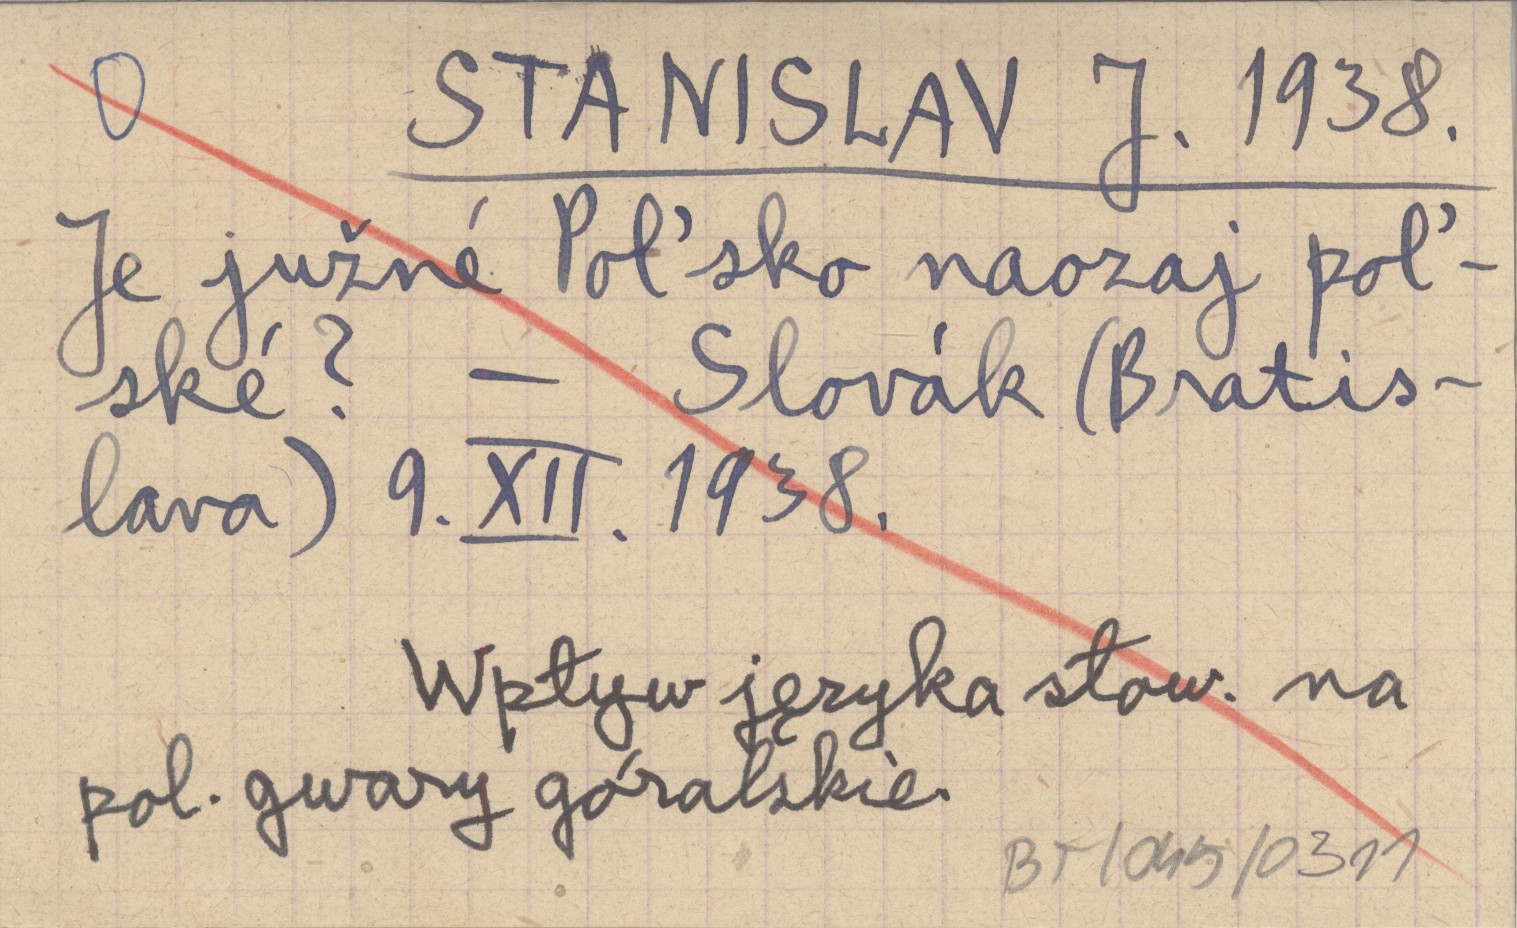 O STANISLAV J. 1938.
Je južné Poľsko naozaj poľ-
ské? — Slovák (Bratis-
lava) 9. XII. 1938.
Wpływ języka słow. na
pol. gwary góralskie.
BT/045/0311